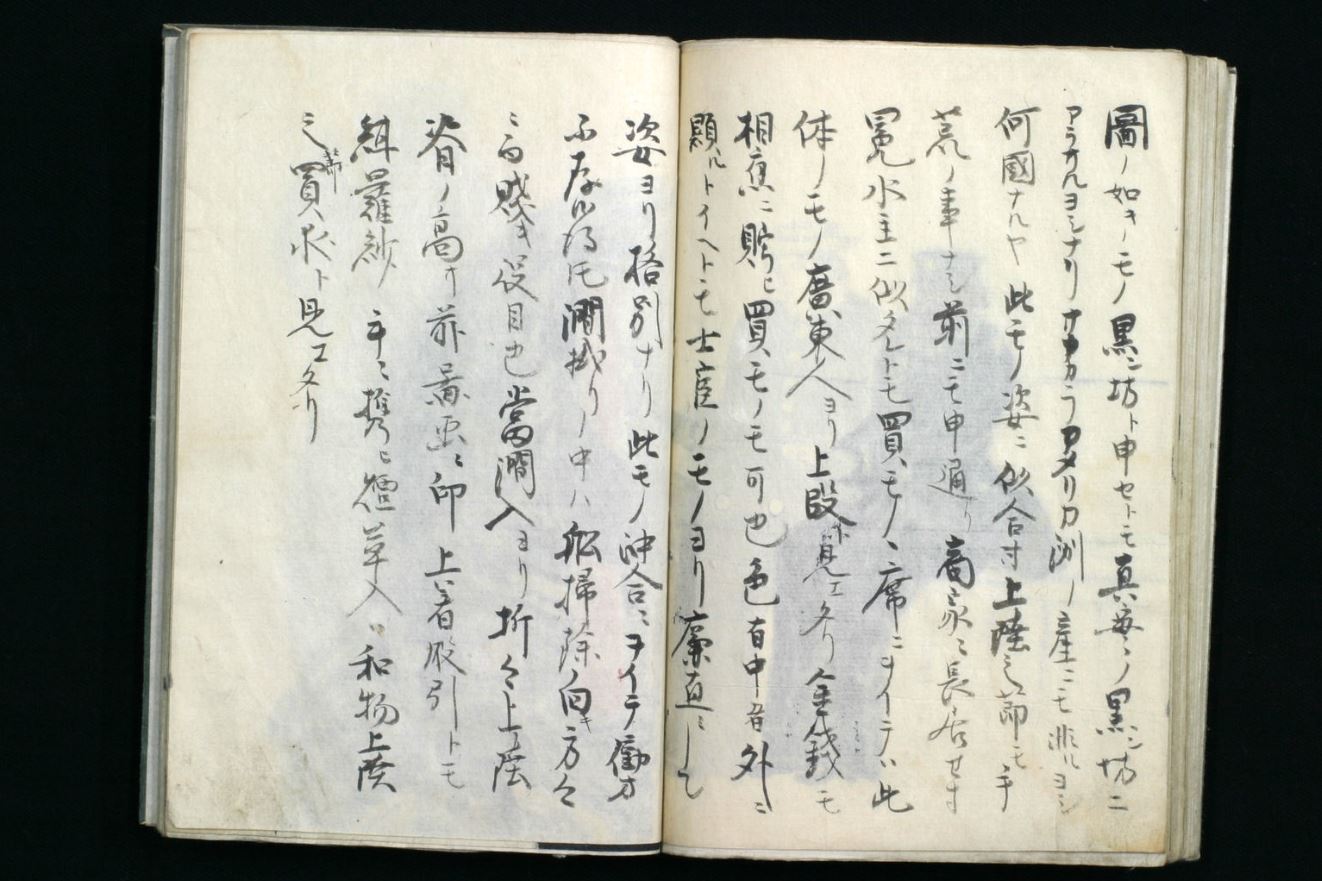 圖ノ如キノモノ黒ン坊ト申セトモ真実ノ黒ン坊ニ
アラサルヨシナリ アタリカ洲ノ産ニモ非ルヨシ
何國ナルヤ此モノ姿ニ似合寸上陸之節モ手
荒ノ事ナシ前ニモ申通リ商家ニ長居せす
冕水主ニ似タレトモ買モノノ席ニヲイテハ此
体ノモノ廣東人ヨリ上段ト見エタリ金銭モ
相應ニ貯ヒ買モノモ可也色百中ノ者外ニ
顕ルトイヘトモ士官ノモノヨリ廉直ニして
姿ヨリ格別ナリ此モノ沖合ニヲイテ働方
不存候得共澗掛リノ中ハ船掃除向キ方々
ニ而賤キ役目也當澗入ヨリ折々上陸
着ノ高サ 印 上着股引トモ
羅紗 手ニ携ヒ煙草入ハ和物上陸
之節買求ト見エタリ